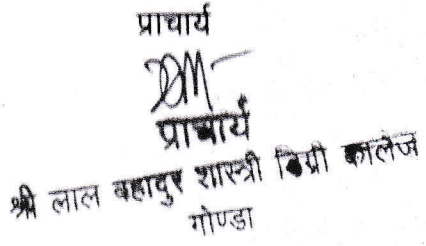 प्राचार्य
प्राचार्य
श्री लाल बहादुर शास्त्री डिग्री कालेज
गोण्डा